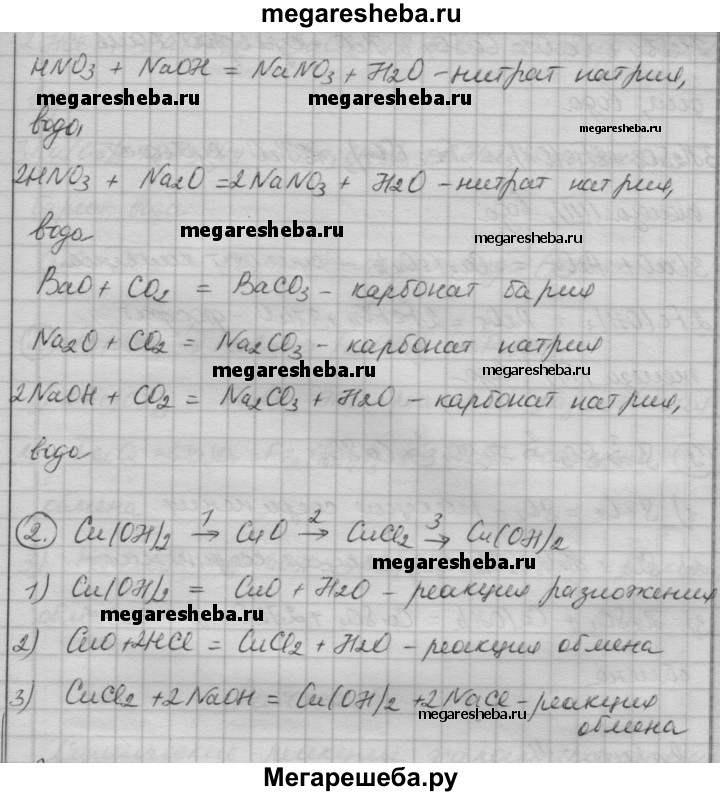 megaresheba.ru
HNO3 + NaOH = NaNO3 + H2O - нитрат натрия,
megaresheba.ru megaresheba.ru
вода,
megaresheba.ru
2HNO3 + Na2O = 2NaNO3 + H2O - нитрат натрия,
вода
megaresheba.ru
megaresheba.ru
BaO + CO2 = BaCO3 - карбонат бария
Na2O + CO2 = Na2CO3 - карбонат натрия
megaresheba.ru megaresheba.ru
2NaOH + CO2 = Na2CO3 + H2O - карбонат натрия,
вода
2. Cu(OH)2 1→ CuO 2→ CuCl2 3→ Cu(OH)2
megaresheba.ru
1) Cu(OH)2 = CuO + H2O - реакция разложения
megaresheba.ru
2) CuO + 2HCl = CuCl2 + H2O - реакция обмена
3) CuCl2 + 2NaOH = Cu(OH)2 + 2NaCl - реакция
megaresheba.ru
обмена
Мегарешеба.ру